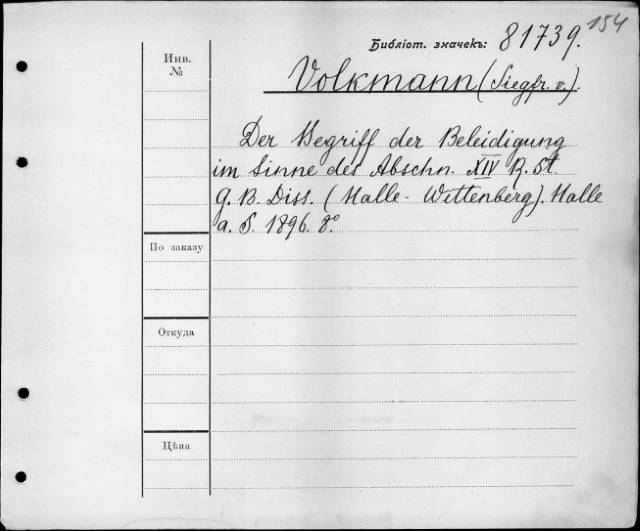 154
Библіот. значекъ: 81739.
Инв.
№
Volkmann (Siegfr. v.).
Der Begriff der Beleidigung
im Sinne des Abschn. XIV R. St.
G. B. Diss. (Halle-Wittenberg). Halle
a. S. 1896. 8°.
По заказу
Откуда
Цѣна